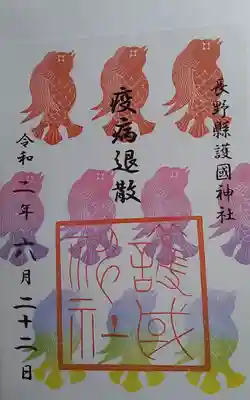 長野縣護國神社
疫病退散
護国
神社
令和二年六月二十二日